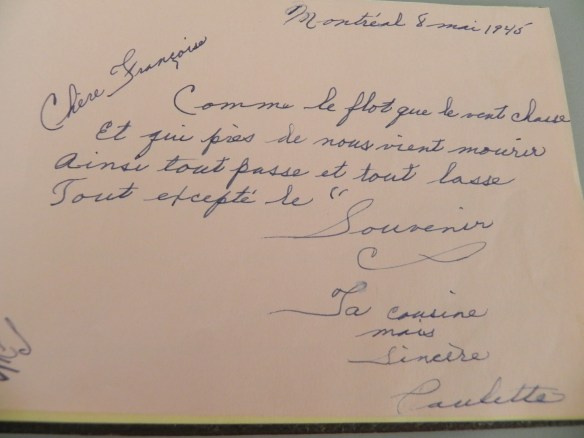 Montréal 8 mai 1945
Chère Françoise
Comme le flot que le vent chasse
Et qui près de nous vient mourir
Ainsi tout passe et tout lasse
Tout excepté le "
Souvenir
Ta cousine
mais
Sincère
Paulette